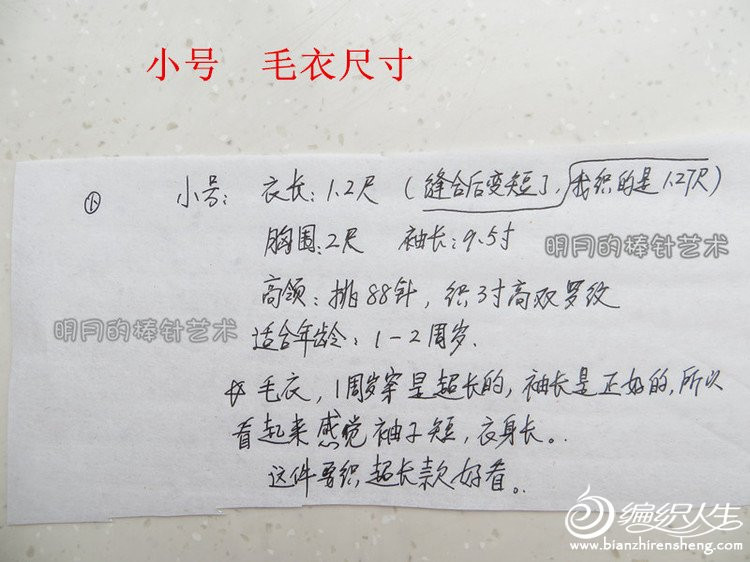 小号 毛衣尺寸
小号: 衣长:1.2尺 (缝合后变短了,我织的是1.27尺)
胸围:2尺 袖长:9.5寸
明月的棒针艺术
高领:挑88针,织3寸高双罗纹
明月的棒针艺术
适合年龄:1-2周岁.
毛衣,1周岁穿是超长的,袖长是正好的,所以
看起来感觉袖子短,衣身长。.
这件要织超长款好看。.
编织人生
www.bianzhirensheng.com